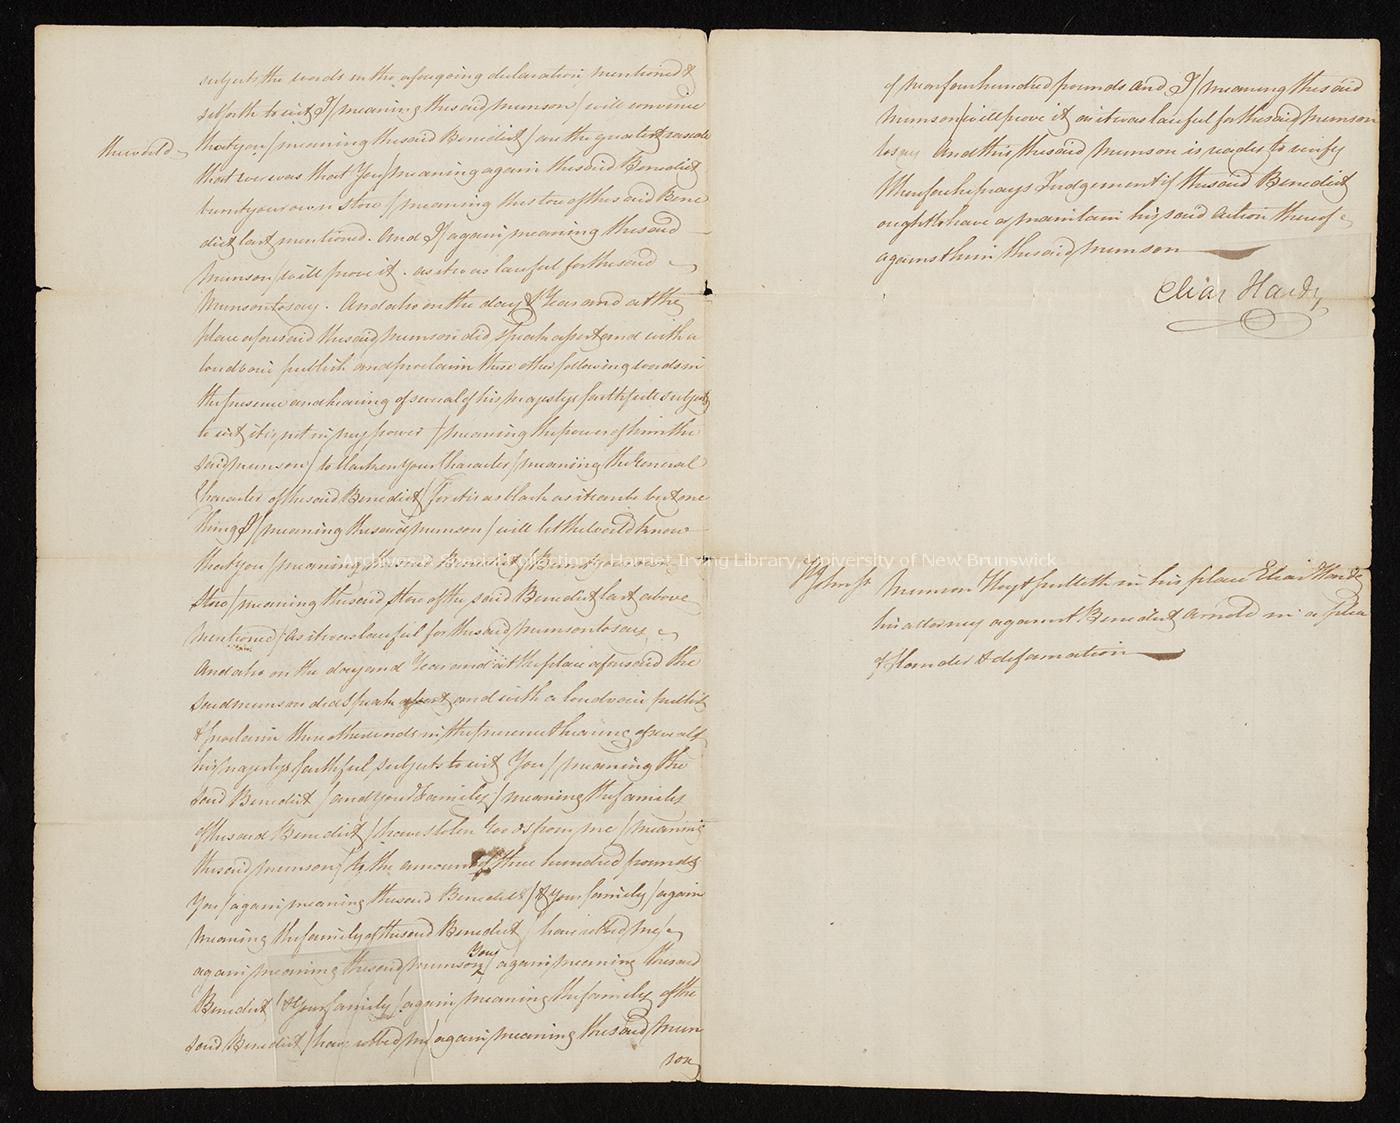 subjects the words in the aforegoing declaration mentioned &
setforth to wit I / meaning the said Munson / will convince
the world
that you / meaning the said Benedict / are the greatest rascale
that ever was that You / meaning again the said Benedict
burnt your own Store / meaning the store of the said Bene
dict last mentioned. And I / again meaning the said
Munson / will prove it. as it was lawful for the said
Munson to say. And also on the day & Year and at the
place aforesaid the said Munson did speak assert and with a
loud voice publish and proclaim these other following words in
the presence and hearing of several of his Majestys faithfull subjects
to wit it is not in my power / meaning the power of him the
said Munson / to blacken your Character / meaning the General
Character of the said Benedict / for it is as black as it can be but one
thing I / meaning the said Munson / will let the world know
that you / meaning the said Benedict / Burnt your own
Store / meaning the said Store of the said Benedict last above
mentioned / As it was lawful for the said Munson to say
And also on the day and Year and at the place aforesaid the
said Munson did speak assert and with a loud voice publish
& proclaim these other words in the presence & hearing of several of
his Majestys faithful subjects to wit You / meaning the
said Benedict / and your Family / meaning the family
of the said Benedict / have stolen Goods from me / meaning
the said Munson / to the amount of three hundred pounds
You / again meaning the said Benedict / & your family / again
meaning the family of the said Benedict / have robbed me /
again meaning the said Munson / You / again meaning the said
Benedict / & Your family / again meaning the family of the
said Benedict / have robbed me / again meaning the said Mun
son
of near four hundred pounds and I / meaning the said
Munson / will prove it as it was lawful for the said Munson
to say And this the said Munson is ready to verify
Wherefore he prays Judgement if the said Benedict
ought to have or maintain his said Action thereof
against him the said Munson
Elias Hardy
St Johns Ss Munson Hoyt putteth in his place Elias Hardy
his attorney against Benedict Arnold in a plea
of Slander & defamation
Archives & Special Collections, Harriet Irving Library, University of New Brunswick